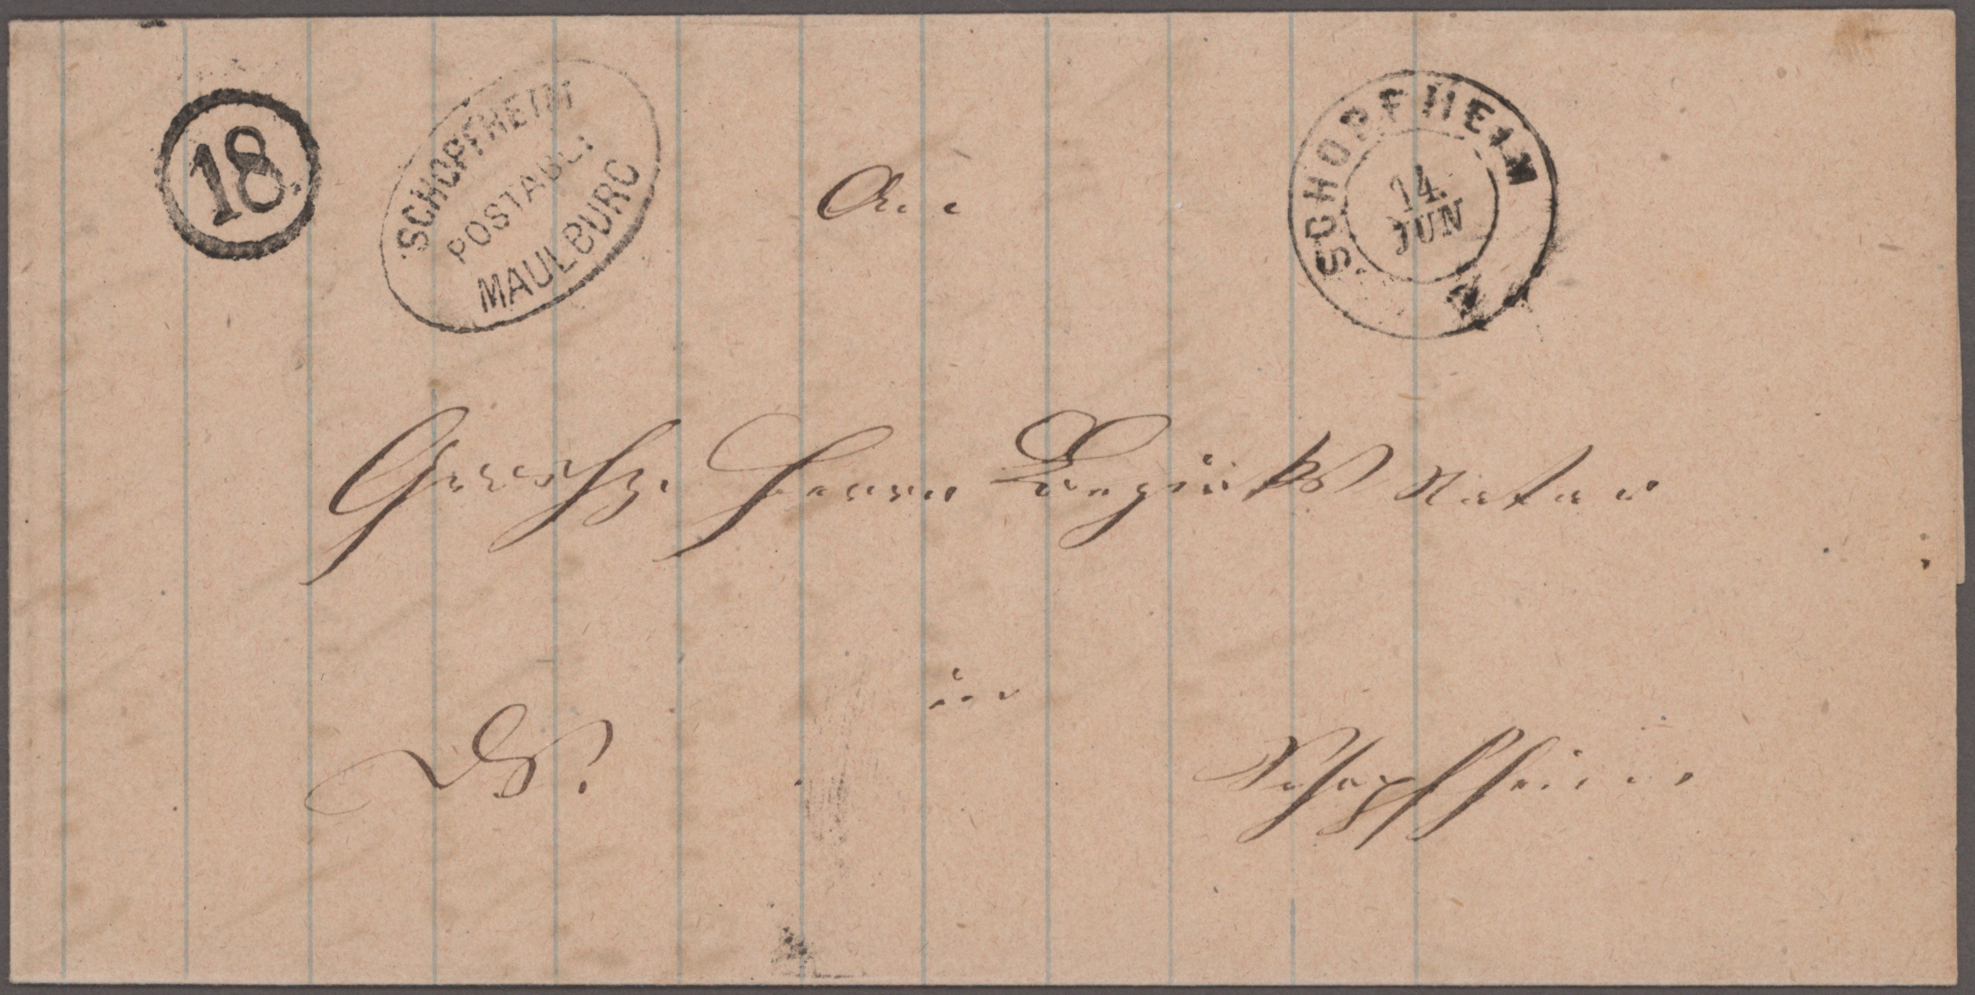 18.
SCHOPFHEIM
POSTABL.
MAULBURG
SCHOPFHEIM
14.
JUN
An
Großhz. Herrn Bezirks Notar
in
DS.
Schopfheim